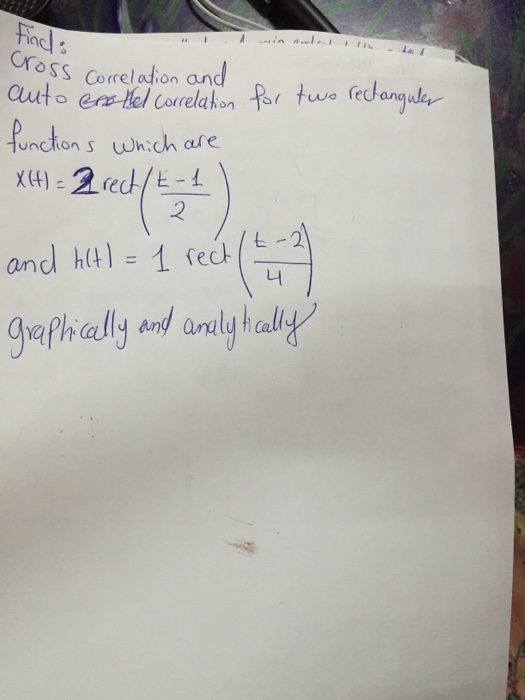 Find:
Cross Correlation and
auto correlation for two rectanguler
functions which are
x(t) = 2 rect(t-1/2)
and h(t) = 1 rect(t-2/4)
graphically and analytically